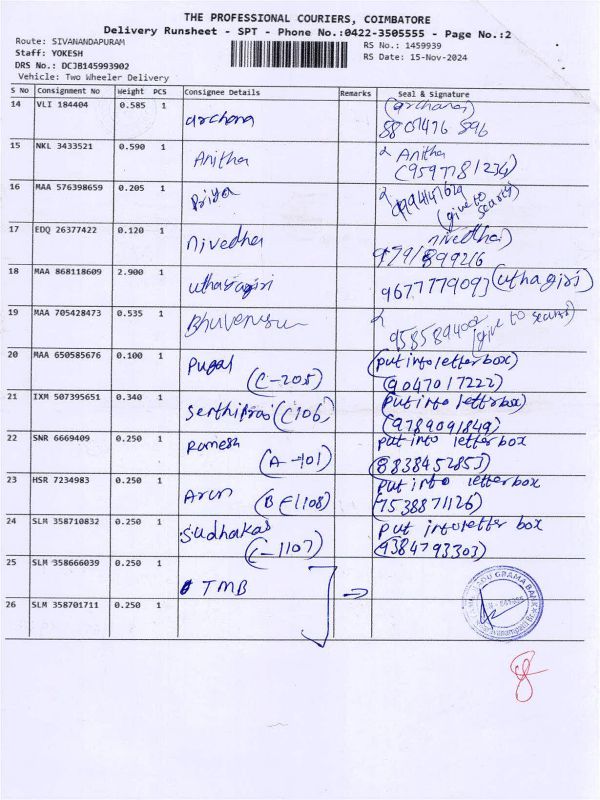 THE PROFESSIONAL COURIERS, COIMBATORE
Delivery Runsheet - SPT - Phone No.:0422-3505555 - Page No.:2
Route: SIVANANDAPURAM
Staff: YOKESH
DRS No.: DCJB145993902
Vehicle: Two Wheeler Delivery
RS No.: 1459939
RS Date: 15-Nov-2024
S No Consignment No Weight PCS Consignee Details Remarks Seal & Signature
14 VLI 184404 0.585 1 archana (archana)
15 NKL 3433521 0.590 1 Anitha Anitha
(9597781234)
16 MAA 576398659 0.205 1 Priya
(give to
17 EDQ 26377422 0.120 1 Nivedha
18 MAA 868118609 2.900 1 9677779093
19 MAA 705428473 0.535 1
9585894002 (give to
20 MAA 650585676 0.100 1 Pugal (C-205) (put into letter box)
(9047017222)
21 IXM 507395651 0.340 1 (C106) (put into letterbox)
(9789091849)
22 SNR 6669409 0.250 1 Ramesh (A-101) put into letterbox
(8838452853)
23 HSR 7234983 0.250 1 Arun put into letterbox
(7538871126)
24 SLM 358710832 0.250 1 Sudhakar (C-1107) put into letter box
(9384793303)
25 SLM 358666039 0.250 1 TMB
26 SLM 358701711 0.250 1
GRAMA BANK